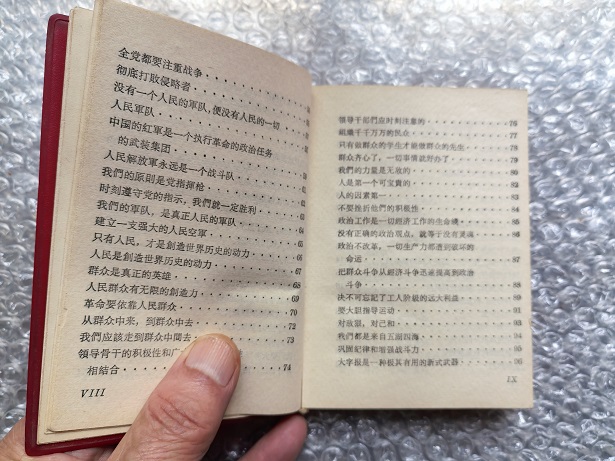 全党都要注重战争
彻底打敗侵略者
沒有一个人民的軍队,便沒有人民的一切
人民軍队
中國的紅軍是一个执行革命的政治任务
的武装集团
人民解放軍永远是一个战斗队
我們的原則是党指揮枪
时刻遵守党的指示,我們就一定胜利
我們的軍队,是真正人民的軍队
建立一支强大的人民空軍 65
只有人民,才是創造世界历史的动力 66
人民是創造世界历史的动力 67
群众是真正的英雄 68
人民群众有无限的創造力 69
革命要依靠人民群众 70
从群众中来,到群众中去 72
我們应該走到群众中間去 73
領导骨干的积极性和广
相結合 74
VIII
領导干部們应时刻注意的 76
組織千千万万的民众 77
只有做群众的学生才能做群众的先生 78
群众齐心了,一切事情就好办了 79
我們的力量是无敌的 80
人是第一个可宝貴的 81
人的因素第一 82
不要挫折他們的积极性 84
政治工作是一切經济工作的生命綫 85
沒有正确的政治观点,就等于沒有灵魂 86
政治不改革,一切生产力都遭到破坏的
命运 87
把群众斗争从經济斗争迅速提高到政治
斗争 88
决不可忘記了工人阶級的远大利益 89
要大胆指导运动 91
对敌狠,对己和 93
我們都是来自五湖四海 94
巩固紀律和增强战斗力 95
大字报是一种极其有用的新式武器 96
IX